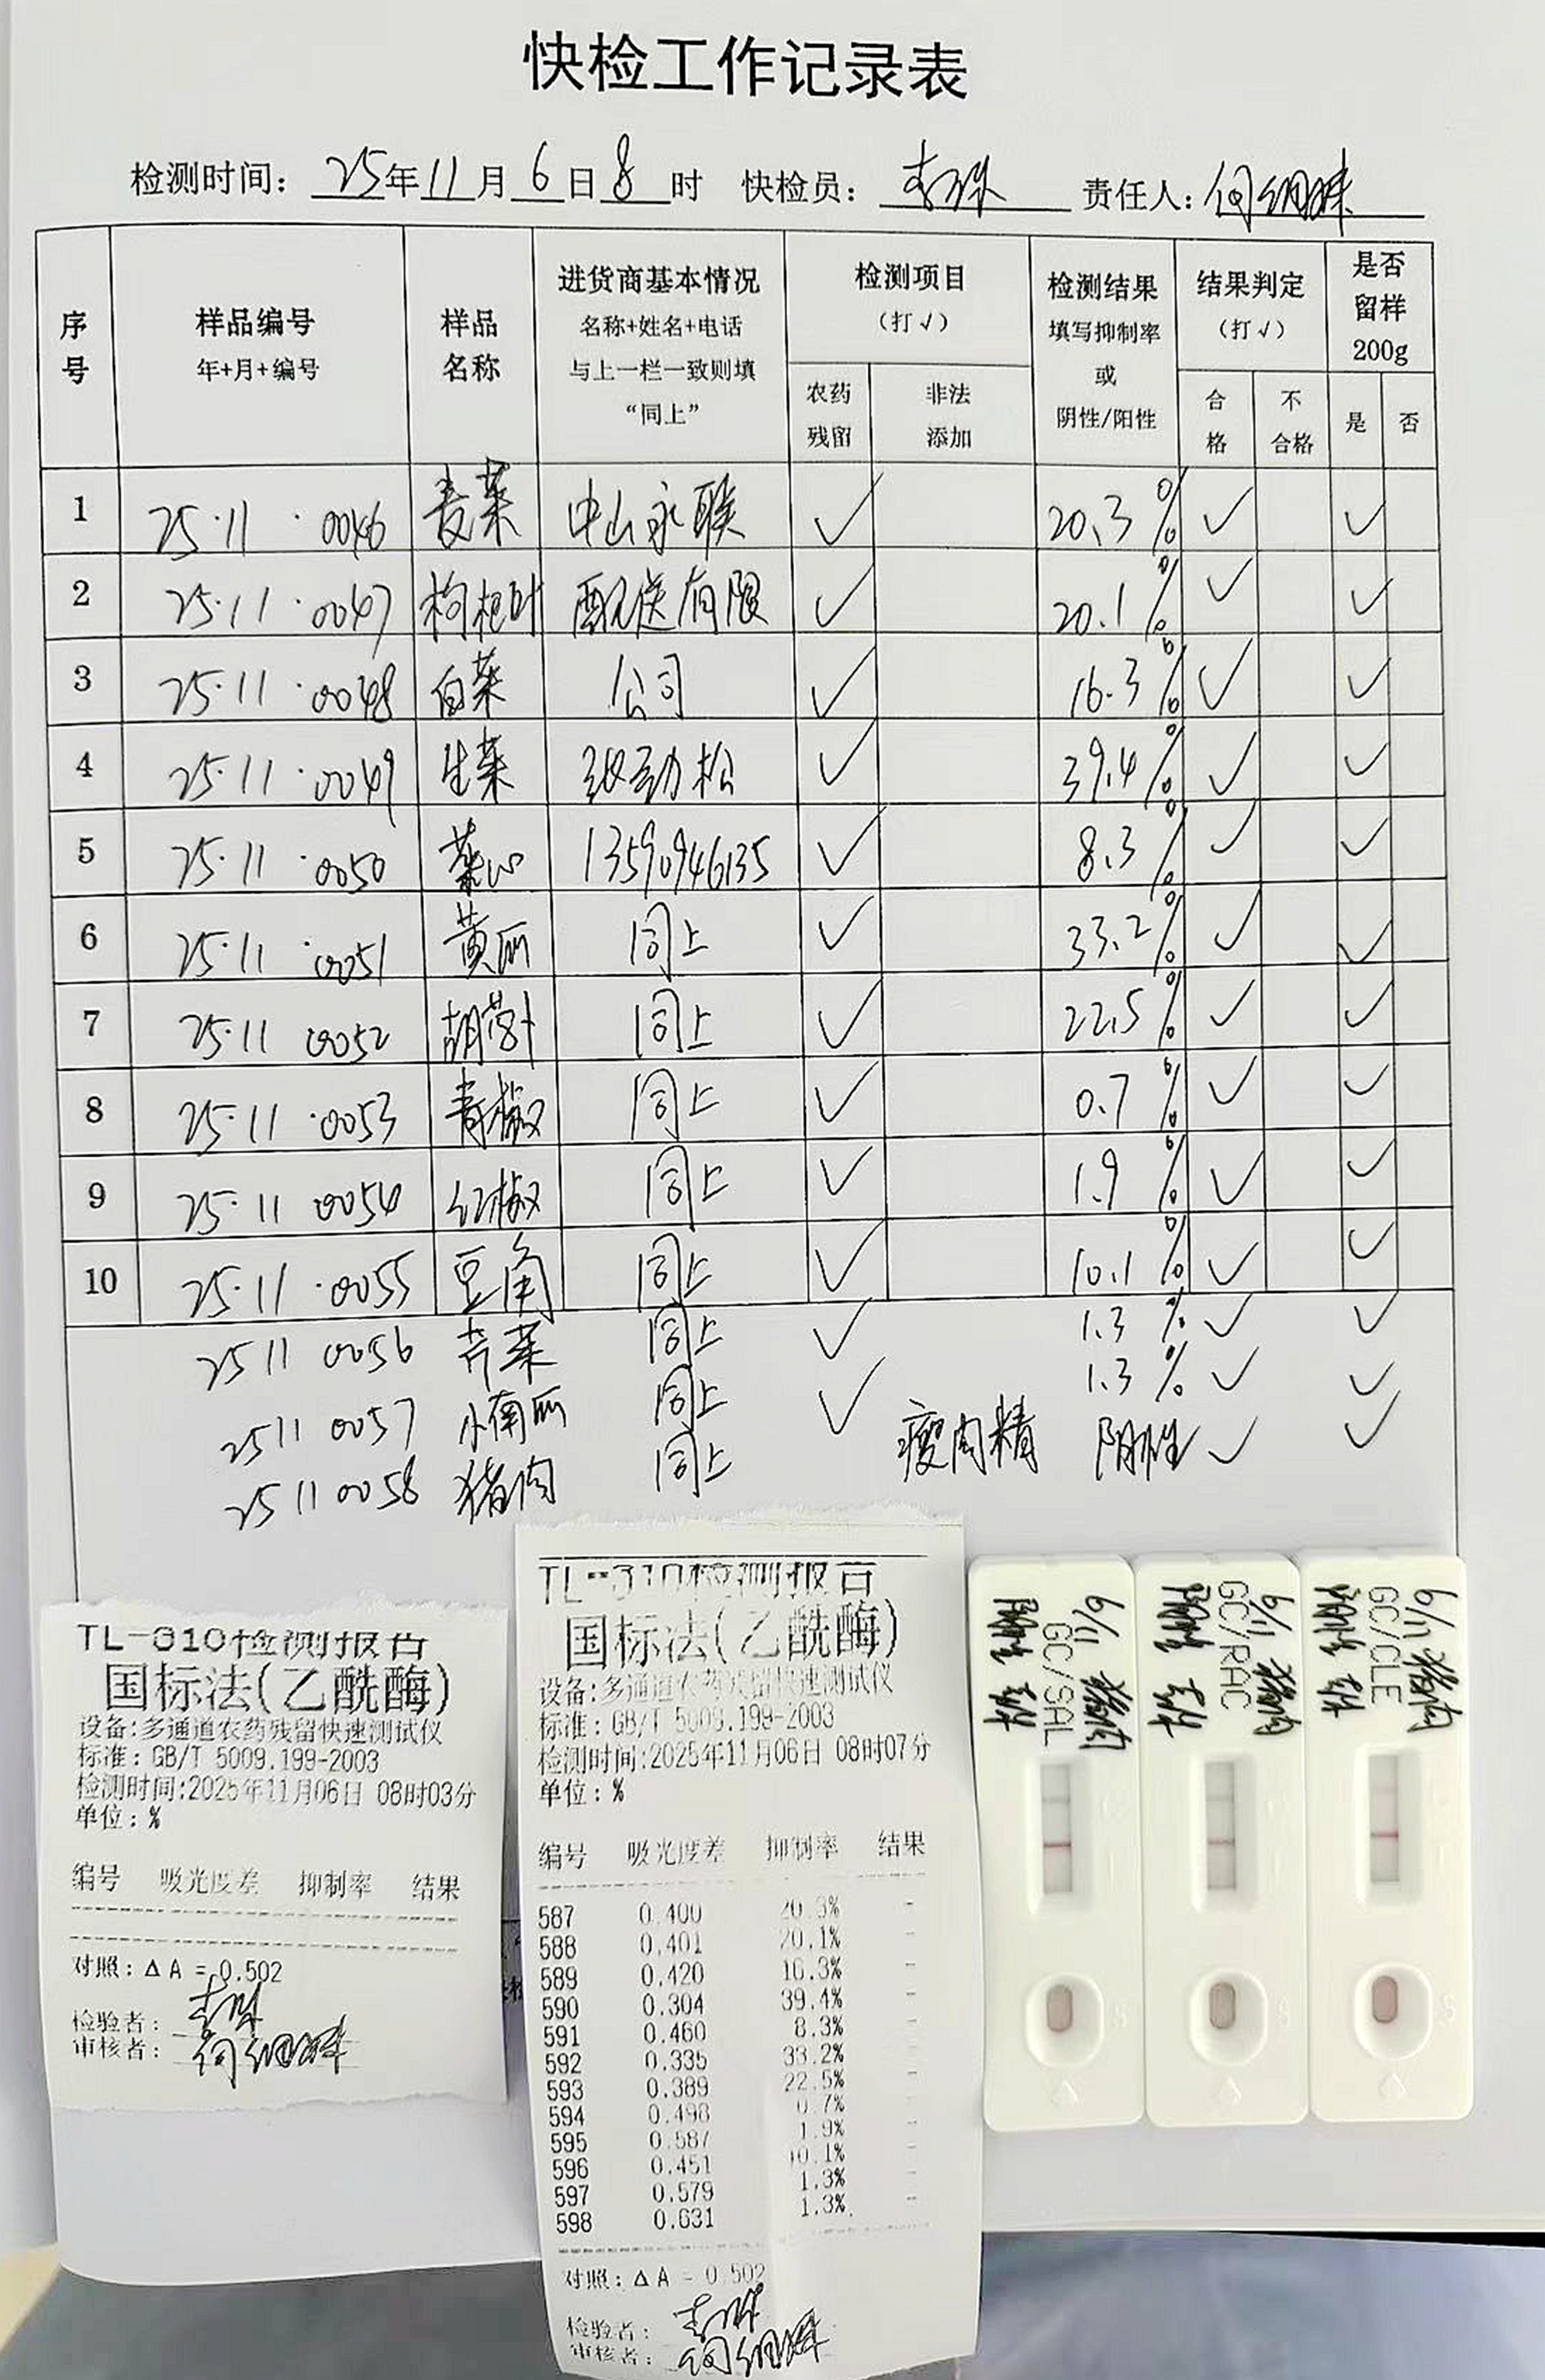 快检工作记录表
检测时间: 25年11月6日8时 快检员: 责任人:
序号 样品编号 年+月+编号 样品名称 进货商基本情况 名称+姓名+电话 与上一栏一致则填“同上” 检测项目 (打√) 农药残留 非法添加 检测结果 填写抑制率 或 阴性/阳性 结果判定 (打√) 合格 不合格 是否留样200g 是 否
1 25·11·0046 麦菜 中山永联 ✓ 20.3% ✓ ✓
2 25·11·0047 枸杞叶 配送有限 ✓ 20.1% ✓ ✓
3 25·11·0048 白菜 公司 ✓ 16.3% ✓ ✓
4 25·11·0049 生菜 劲松 ✓ 39.4% ✓ ✓
5 25·11·0050 菜心 13590946135 ✓ 8.3% ✓ ✓
6 25·11·0051 黄瓜 同上 ✓ 33.2% ✓ ✓
7 25·11 0052 胡萝卜 同上 ✓ 22.5% ✓ ✓
8 25·11·0053 青椒 同上 ✓ 0.7% ✓ ✓
9 25·11 0054 红椒 同上 ✓ 1.9% ✓ ✓
10 25·11·0055 豆角 同上 ✓ 10.1% ✓ ✓
25 11 0056 芹菜 同上 ✓ 1.3% ✓ ✓
25 11 0057 小南瓜 同上 ✓ 1.3% ✓ ✓
25 11 0058 猪肉 同上 瘦肉精 阴性 ✓ ✓
TL-310检测报告
国标法(乙酰酶)
设备:多通道农药残留快速测试仪
标准: GB/T 5009.199-2003
检测时间:2025年11月06日 08时03分
单位: %
编号 吸光度差 抑制率 结果
对照: ΔA = 0.502
检验者:
审核者:
TL-310检测报告
国标法(乙酰酶)
设备:多通道农药残留快速测试仪
标准: GB/T 5009.199-2003
检测时间:2025年11月06日 08时07分
单位: %
编号 吸光度差 抑制率 结果
587 0.400 20.3% -
588 0.401 20.1% -
589 0.420 16.3% -
590 0.304 39.4% -
591 0.460 8.3% -
592 0.335 33.2% -
593 0.389 22.5% -
594 0.498 0.7% -
595 0.587 1.9% -
596 0.451 10.1% -
597 0.579 1.3% -
598 0.631 1.3% -
对照: ΔA = 0.502
检验者:
审核者:
6/11 猪肉
GC/SAL
阴性
6/11 猪肉
GC/RAC
阴性
6/11 猪肉
GC/CLE
阴性